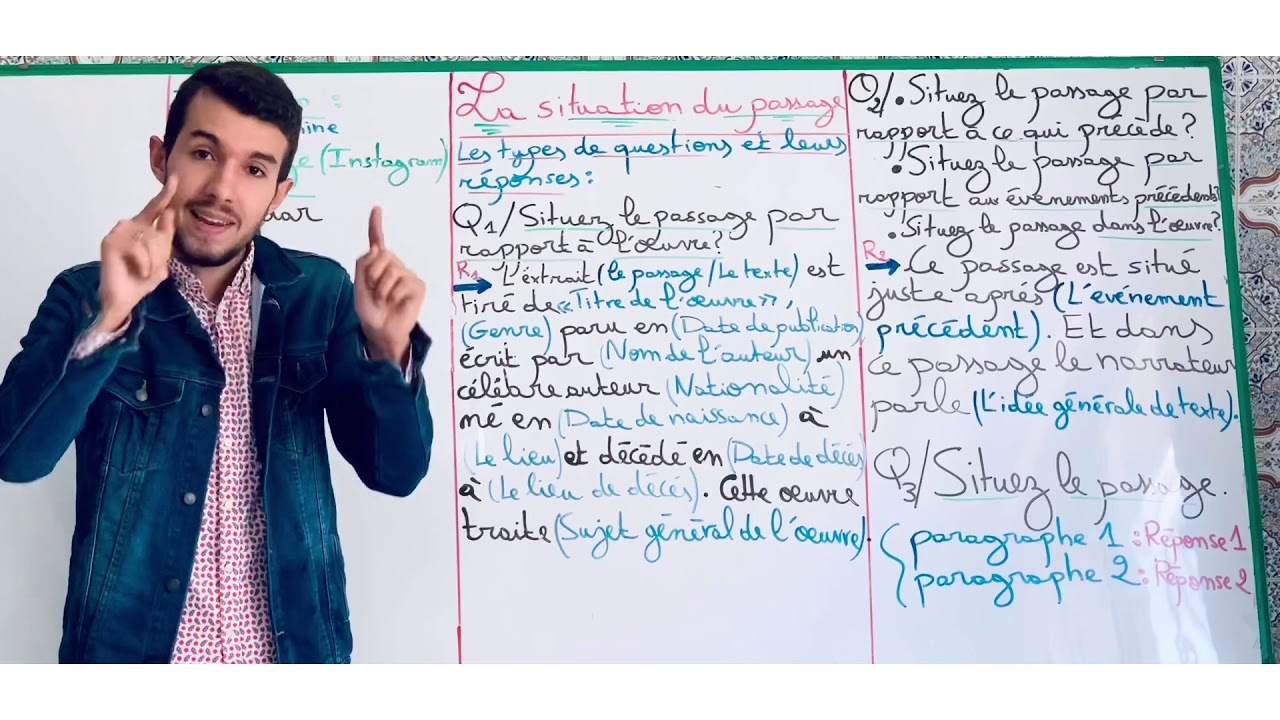 :
(Instagram)
La situation du passage
Les types de questions et leurs
réponses :
Q1/Situez le passage par
rapport à l'œuvre ?
R1
L'éxtrait (le passage/Le texte) est
tiré de «Titre de l'œuvre»,
(Genre) paru en (Date de publication)
écrit par (Nom de l'auteur) un
célébre auteur (Nationalité)
né en (Date de naissance) à
(Le lieu) et décédé en (Date de décés)
à (Le lieu de décés). Cette œuvre
traite (Sujet général de l'œuvre).
Q2/. Situez le passage par
rapport à ce qui précède ?
. Situez le passage par
rapport aux événements précédents ?
. Situez le passage dans l'œuvre ?
R2
Ce passage est situé
juste aprés (L'événement
précédent). Et dans
ce passage le narrateur
parle (L'idée générale de texte).
Q3/Situez le passage.
paragraphe 1 : Réponse 1
paragraphe 2 : Réponse 2